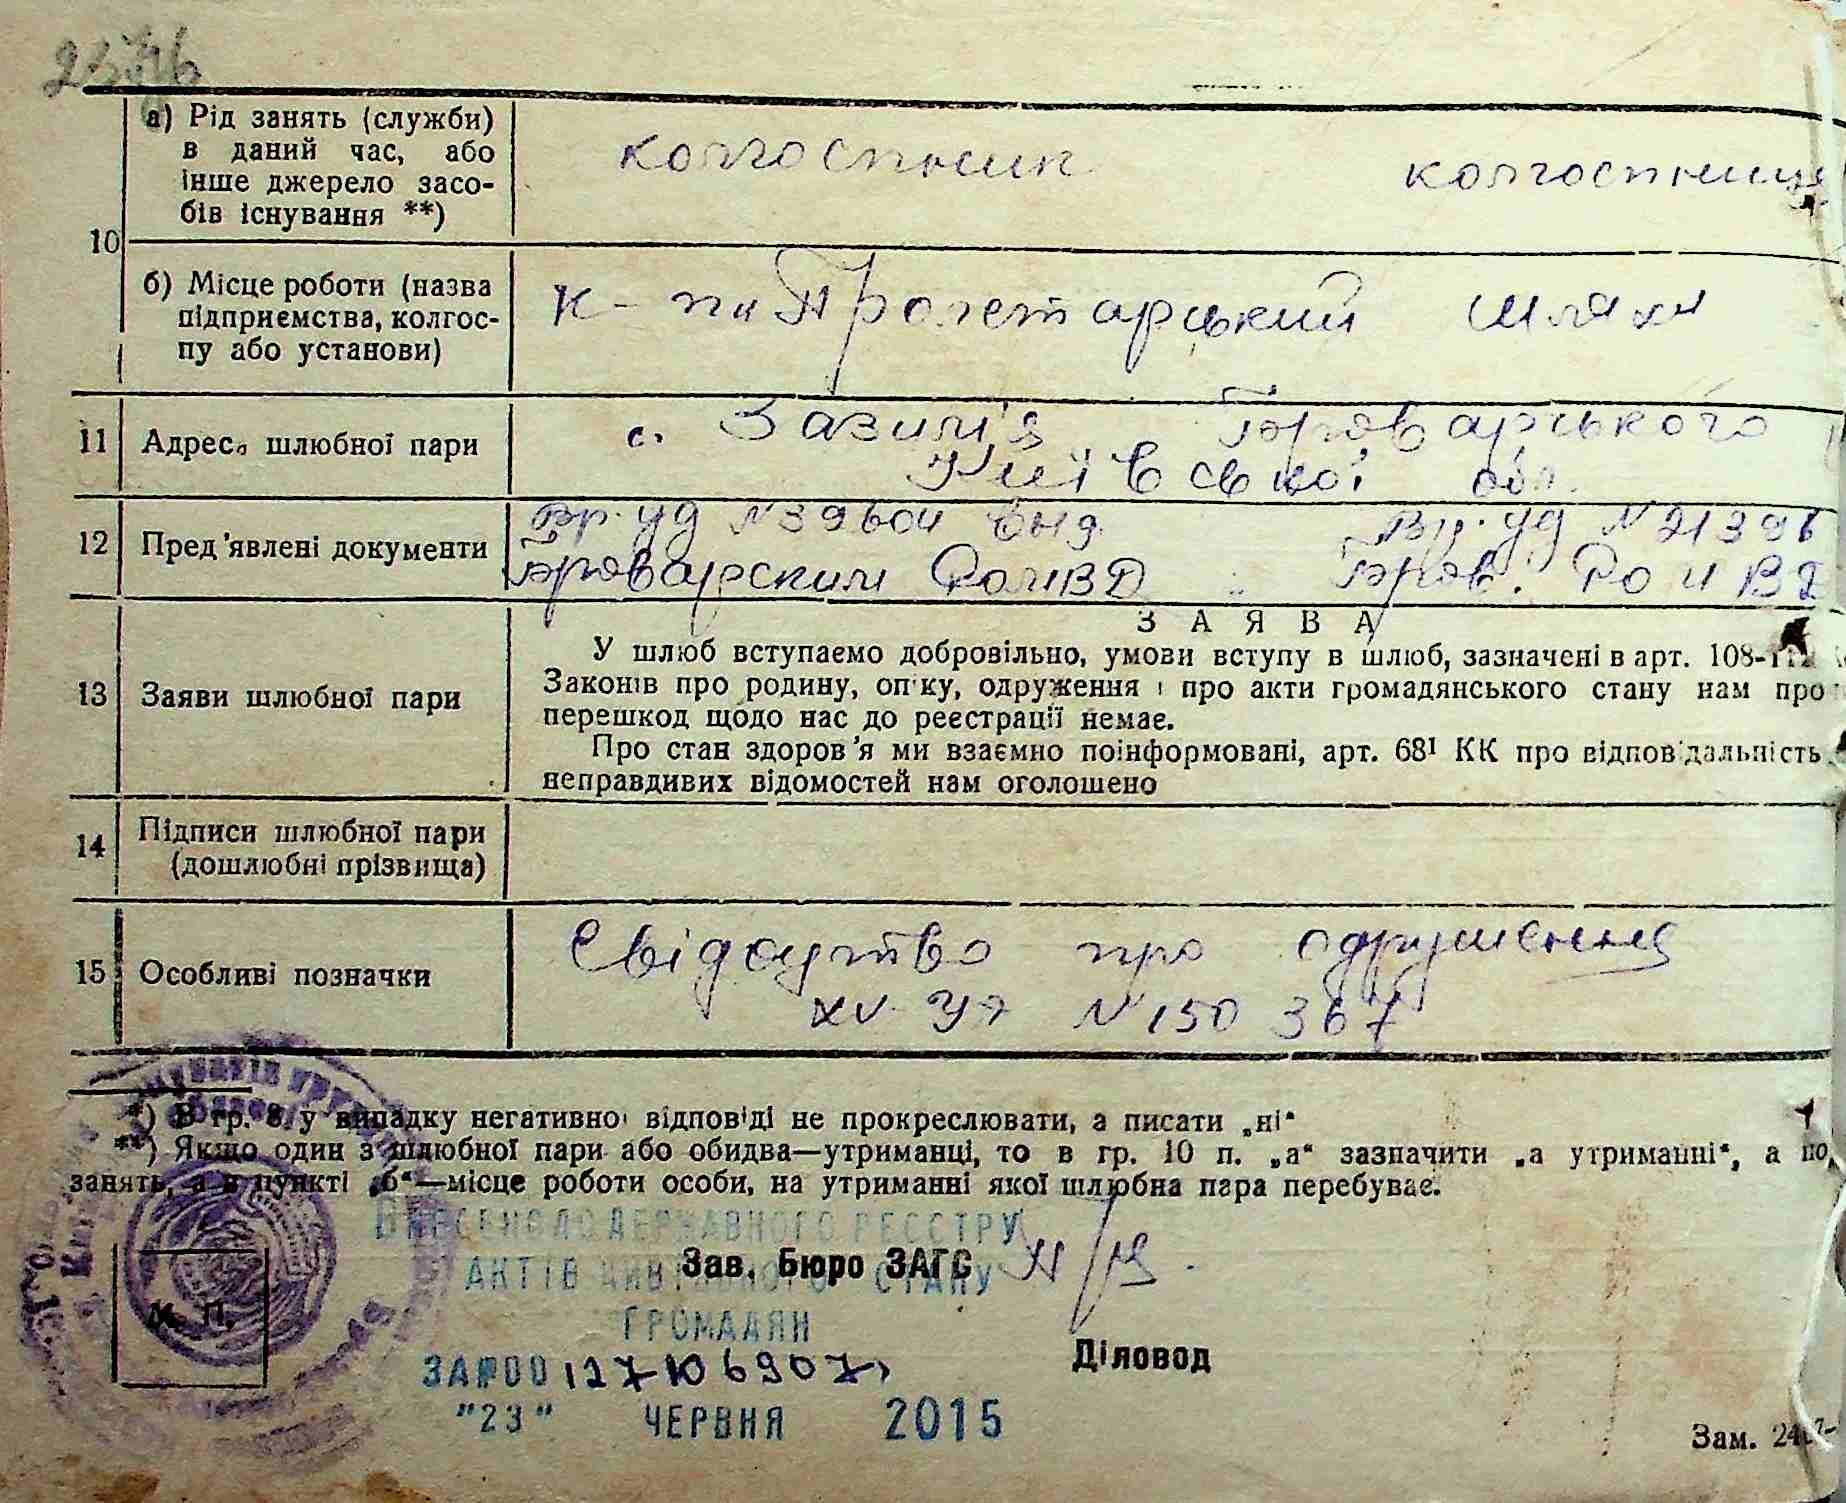 10
а) Рід занять (служби)
в даний час, або
інше джерело засо-
бів існування **)
колгоспник колгоспниця
б) Місце роботи (назва
підприємства, колгос-
пу або установи)
к-п „Пролетарський шлях"
11 Адреса шлюбної пари
с. Зазим'я Броварського
Київської обл.
12 Пред'явлені документи
Вр. уд N 39604 Вид. Вр. уд N 21396
Броварским РОМВД Бров. РО МВД
13 Заяви шлюбної пари
ЗАЯВА
У шлюб вступаємо добровільно, умови вступу в шлюб, зазначені в арт. 108-112
Законів про родину, опіку, одруження і про акти громадянського стану нам про
перешкод щодо нас до реєстрації немає.
Про стан здоров'я ми взаємно поінформовані, арт. 68¹ КК про відповідальність
неправдивих відомостей нам оголошено
14 Підписи шлюбної пари
(дошлюбні прізвища)
15 Особливі позначки
Свідоцтво про одруження
XV-УЯ N 150367
*) В гр. 8, у випадку негативної відповіді не прокреслювати, а писати „ні“
**) Якщо один з шлюбної пари або обидва—утриманці, то в гр. 10 п. „а“ зазначити „а утриманні“, а по
занять, а в пункті „б“—місце роботи особи, на утриманні якої шлюбна пара перебуває.
ВНЕСЕНО ДО ДЕРЖАВНОГО РЕЄСТРУ
АКТІВ ЦИВІЛЬНОГО СТАНУ
ГРОМАДЯН
Зав. Бюро ЗАГС
М. П.
Діловод
ЗА №00127106907
"23" ЧЕРВНЯ 2015
Зам.